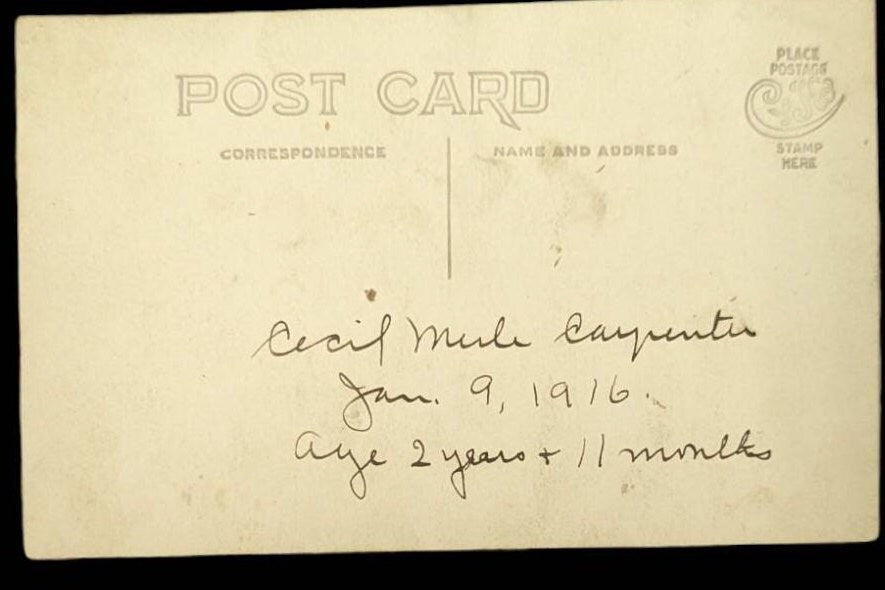 POST CARD
CORRESPONDENCE
NAME AND ADDRESS
PLACE
POSTAGE
STAMP
HERE
Cecil Merle Carpenter
Jan. 9, 1916.
Age 2 years + 11 months